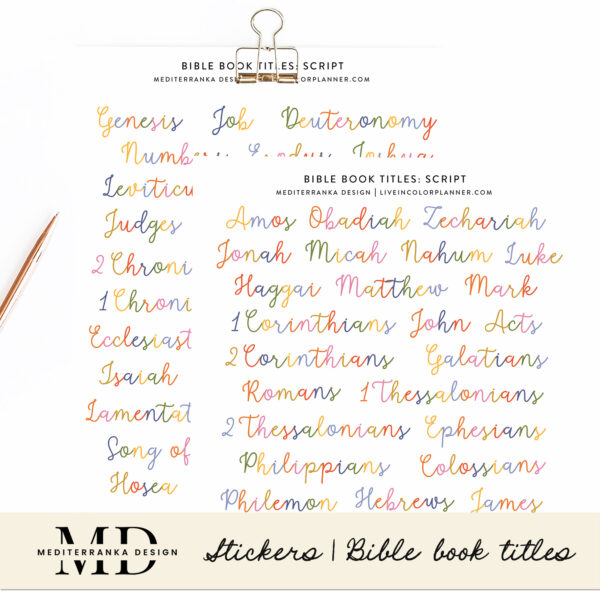 BIBLE BOOK TITLES: SCRIPT
MEDITERRANKA DESIGN
Genesis Job Deuteronomy
Numbers Exodus Joshua
Leviticu
Judges
2 Chroni
1 Chroni
Ecclesiast
Isaiah
Lamentat
Song of
Hosea
BIBLE BOOK TITLES: SCRIPT
MEDITERRANKA DESIGN | LIVEINCOLORPLANNER.COM
Amos Obadiah Zechariah
Jonah Micah Nahum Luke
Haggai Matthew Mark
1 Corinthians John Acts
2 Corinthians Galatians
Romans 1 Thessalonians
2 Thessalonians Ephesians
Philippians Colossians
Philemon Hebrews James
MD
MEDITERRANKA DESIGN
Stickers | Bible book titles